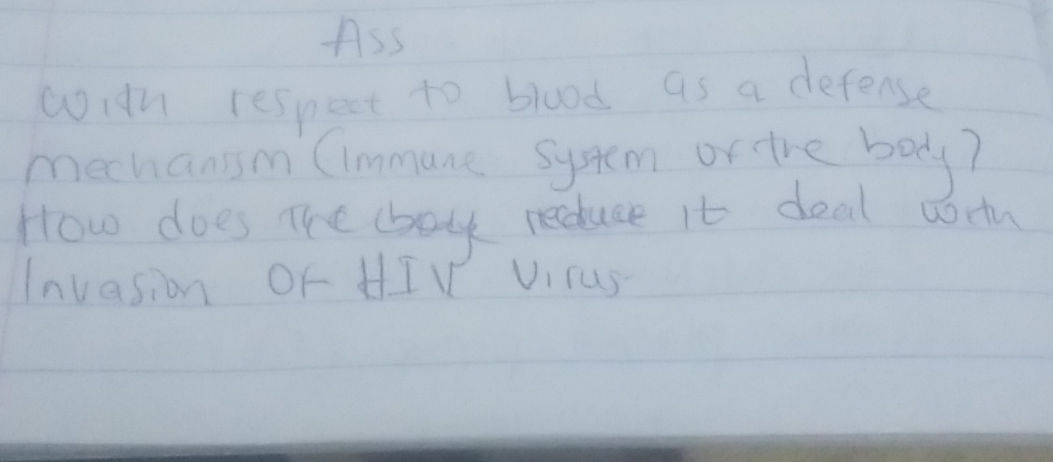 Ass
With respect to blood as a defense
mechanism (Immune System of the body)
How does the body it deal with
Invasion of HIV Virus